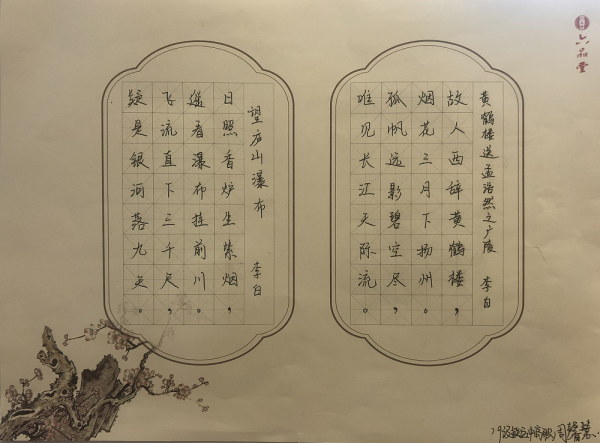 六品堂
黄鹤楼送孟浩然之广陵 李白
故人西辞黄鹤楼，
烟花三月下扬州。
孤帆远影碧空尽，
唯见长江天际流。
望庐山瀑布 李白
日照香炉生紫烟，
遥看瀑布挂前川。
飞流直下三千尺，
疑是银河落九天。
周馨慧